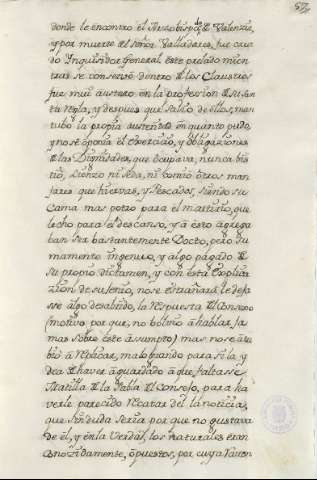 57
donde le encontro el Arzobispdo. de Valencia,
y por muerte del Señor Valladares, fue crea
do Inquisidor General. este prelado mien
tras se conservó dentro de los Claustros
fue mui austero en la profession de su San
ta Regla, y despues que salio de ellos, man
tubo la propia austeridad en quanto pudo,
y no se oponia el exercicio, y obligaciones
de las Dignidades, que ocupava, nunca bis
tió, Lienzo ni seda, ni comio otros man
jares que hiervas, y Pescados, siendo su
Cama mas potro para el martirio, que
lecho para el descanso, y à esto agrega
ban ser bastantemente Docto, pero su
mamente ingenuo, y algo pagado de
su propio dictamen, y con està explica
zion de su genio, no se estrañará le deja
sse algo desabrido, la Respuesta del Consejo
(motivo por que, no bolvio à hablar ja
mas sobre este assumpto) mas no se atre
bio à Replicar, malogrando para si la, y
dea de haver aguardado à que, faltasse
de la Tabla el Consejo, para ha
verle parecido Recatar del la noticia,
que sin duda seria por que no gustava
de èl, y en la Verdad, los naturales eran
conozidamente, opuestos, por cuya razon